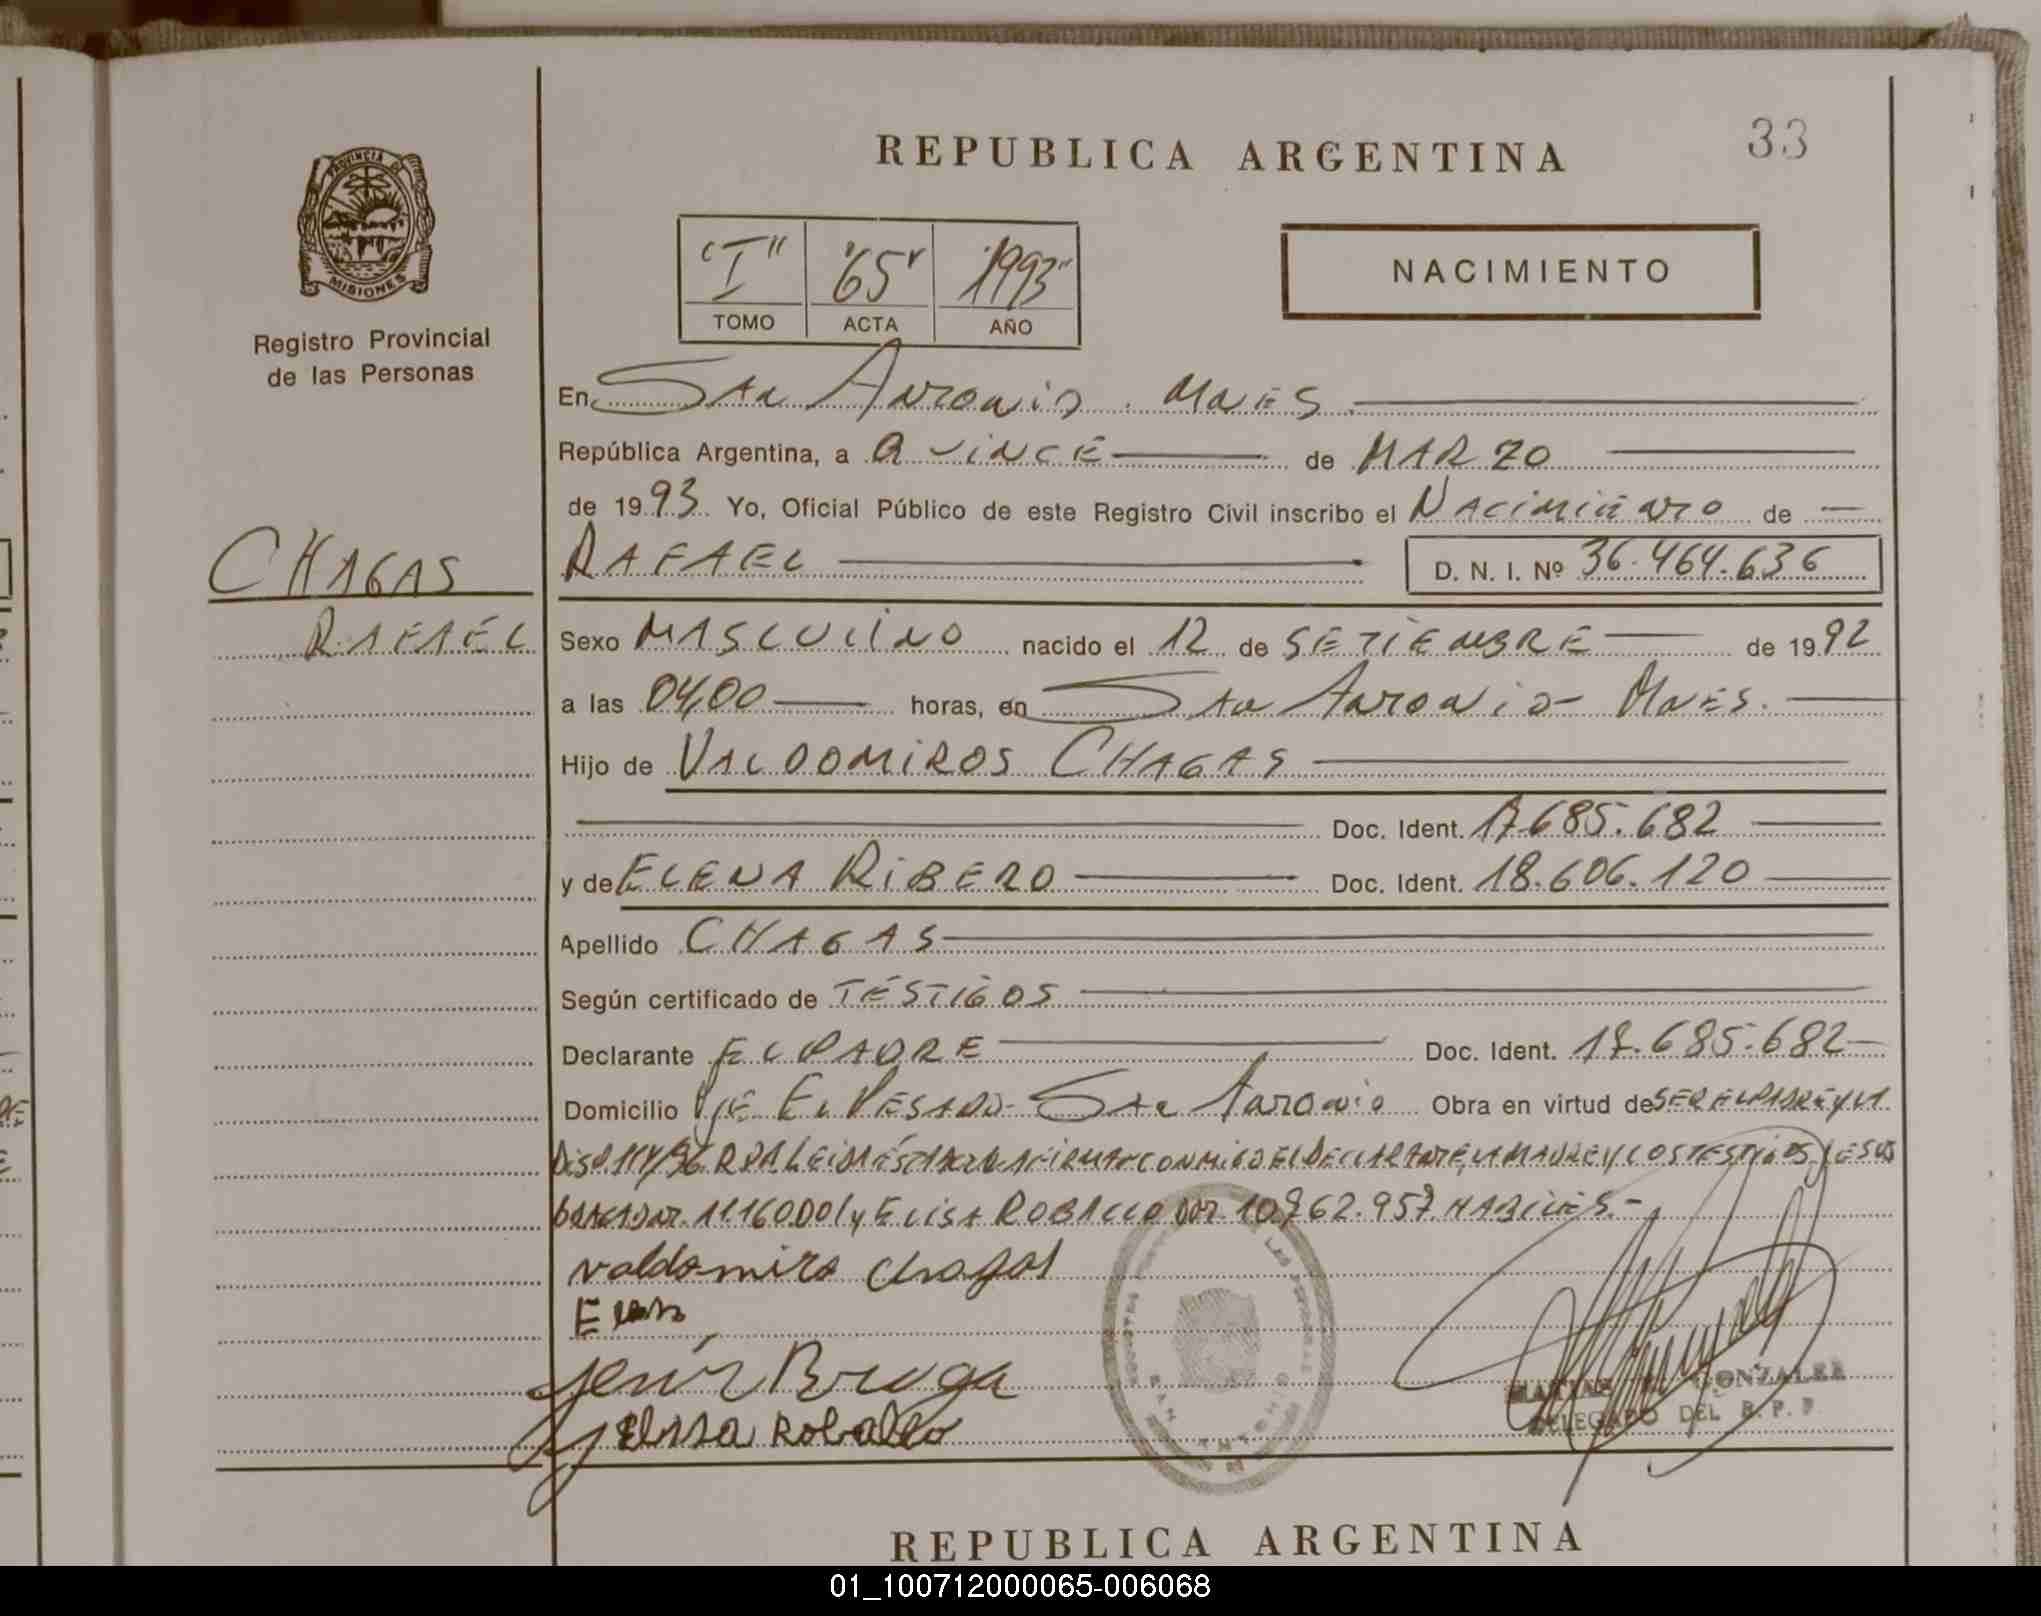 REPUBLICA ARGENTINA
33
PROVINCIA DE
MISIONES
Registro Provincial
de las Personas
"I" "65" "1993"
TOMO ACTA AÑO
NACIMIENTO
En San Antonio. Mnes.
República Argentina, a QUINCE de MARZO
de 1993 Yo, Oficial Público de este Registro Civil inscribo el NACIMIENTO de
CHAGAS
RAFAEL
RAFAEL D. N. I. Nº 36.464.636
Sexo MASCULINO nacido el 12 de SETIEMBRE de 1992
a las 04,00 horas, en San Antonio - Mnes.
Hijo de VALDOMIROS CHAGAS
Doc. Ident. 17.685.682
y de ELENA RIBERO Doc. Ident. 18.606.120
Apellido CHAGAS
Según certificado de TESTIGOS
Declarante EL PADRE Doc. Ident. 17.685.682
Domicilio El PESADO - San Antonio Obra en virtud de SER EL PADRE y LA
DISP 114/96 LEIDA ESTA ACTA LA FIRMAN CONMIGO EL DECLARANTE, LA MADRE Y LOS TESTIGOS JESUS
y ELISA ROBALLO HABILES.-
valdomiro chagas
Jesús Braga
Elisa Roballo
SAN ANTONIO
GONZALEZ
DELEGADO DEL R. P. P.
REPUBLICA ARGENTINA
01_100712000065-006068